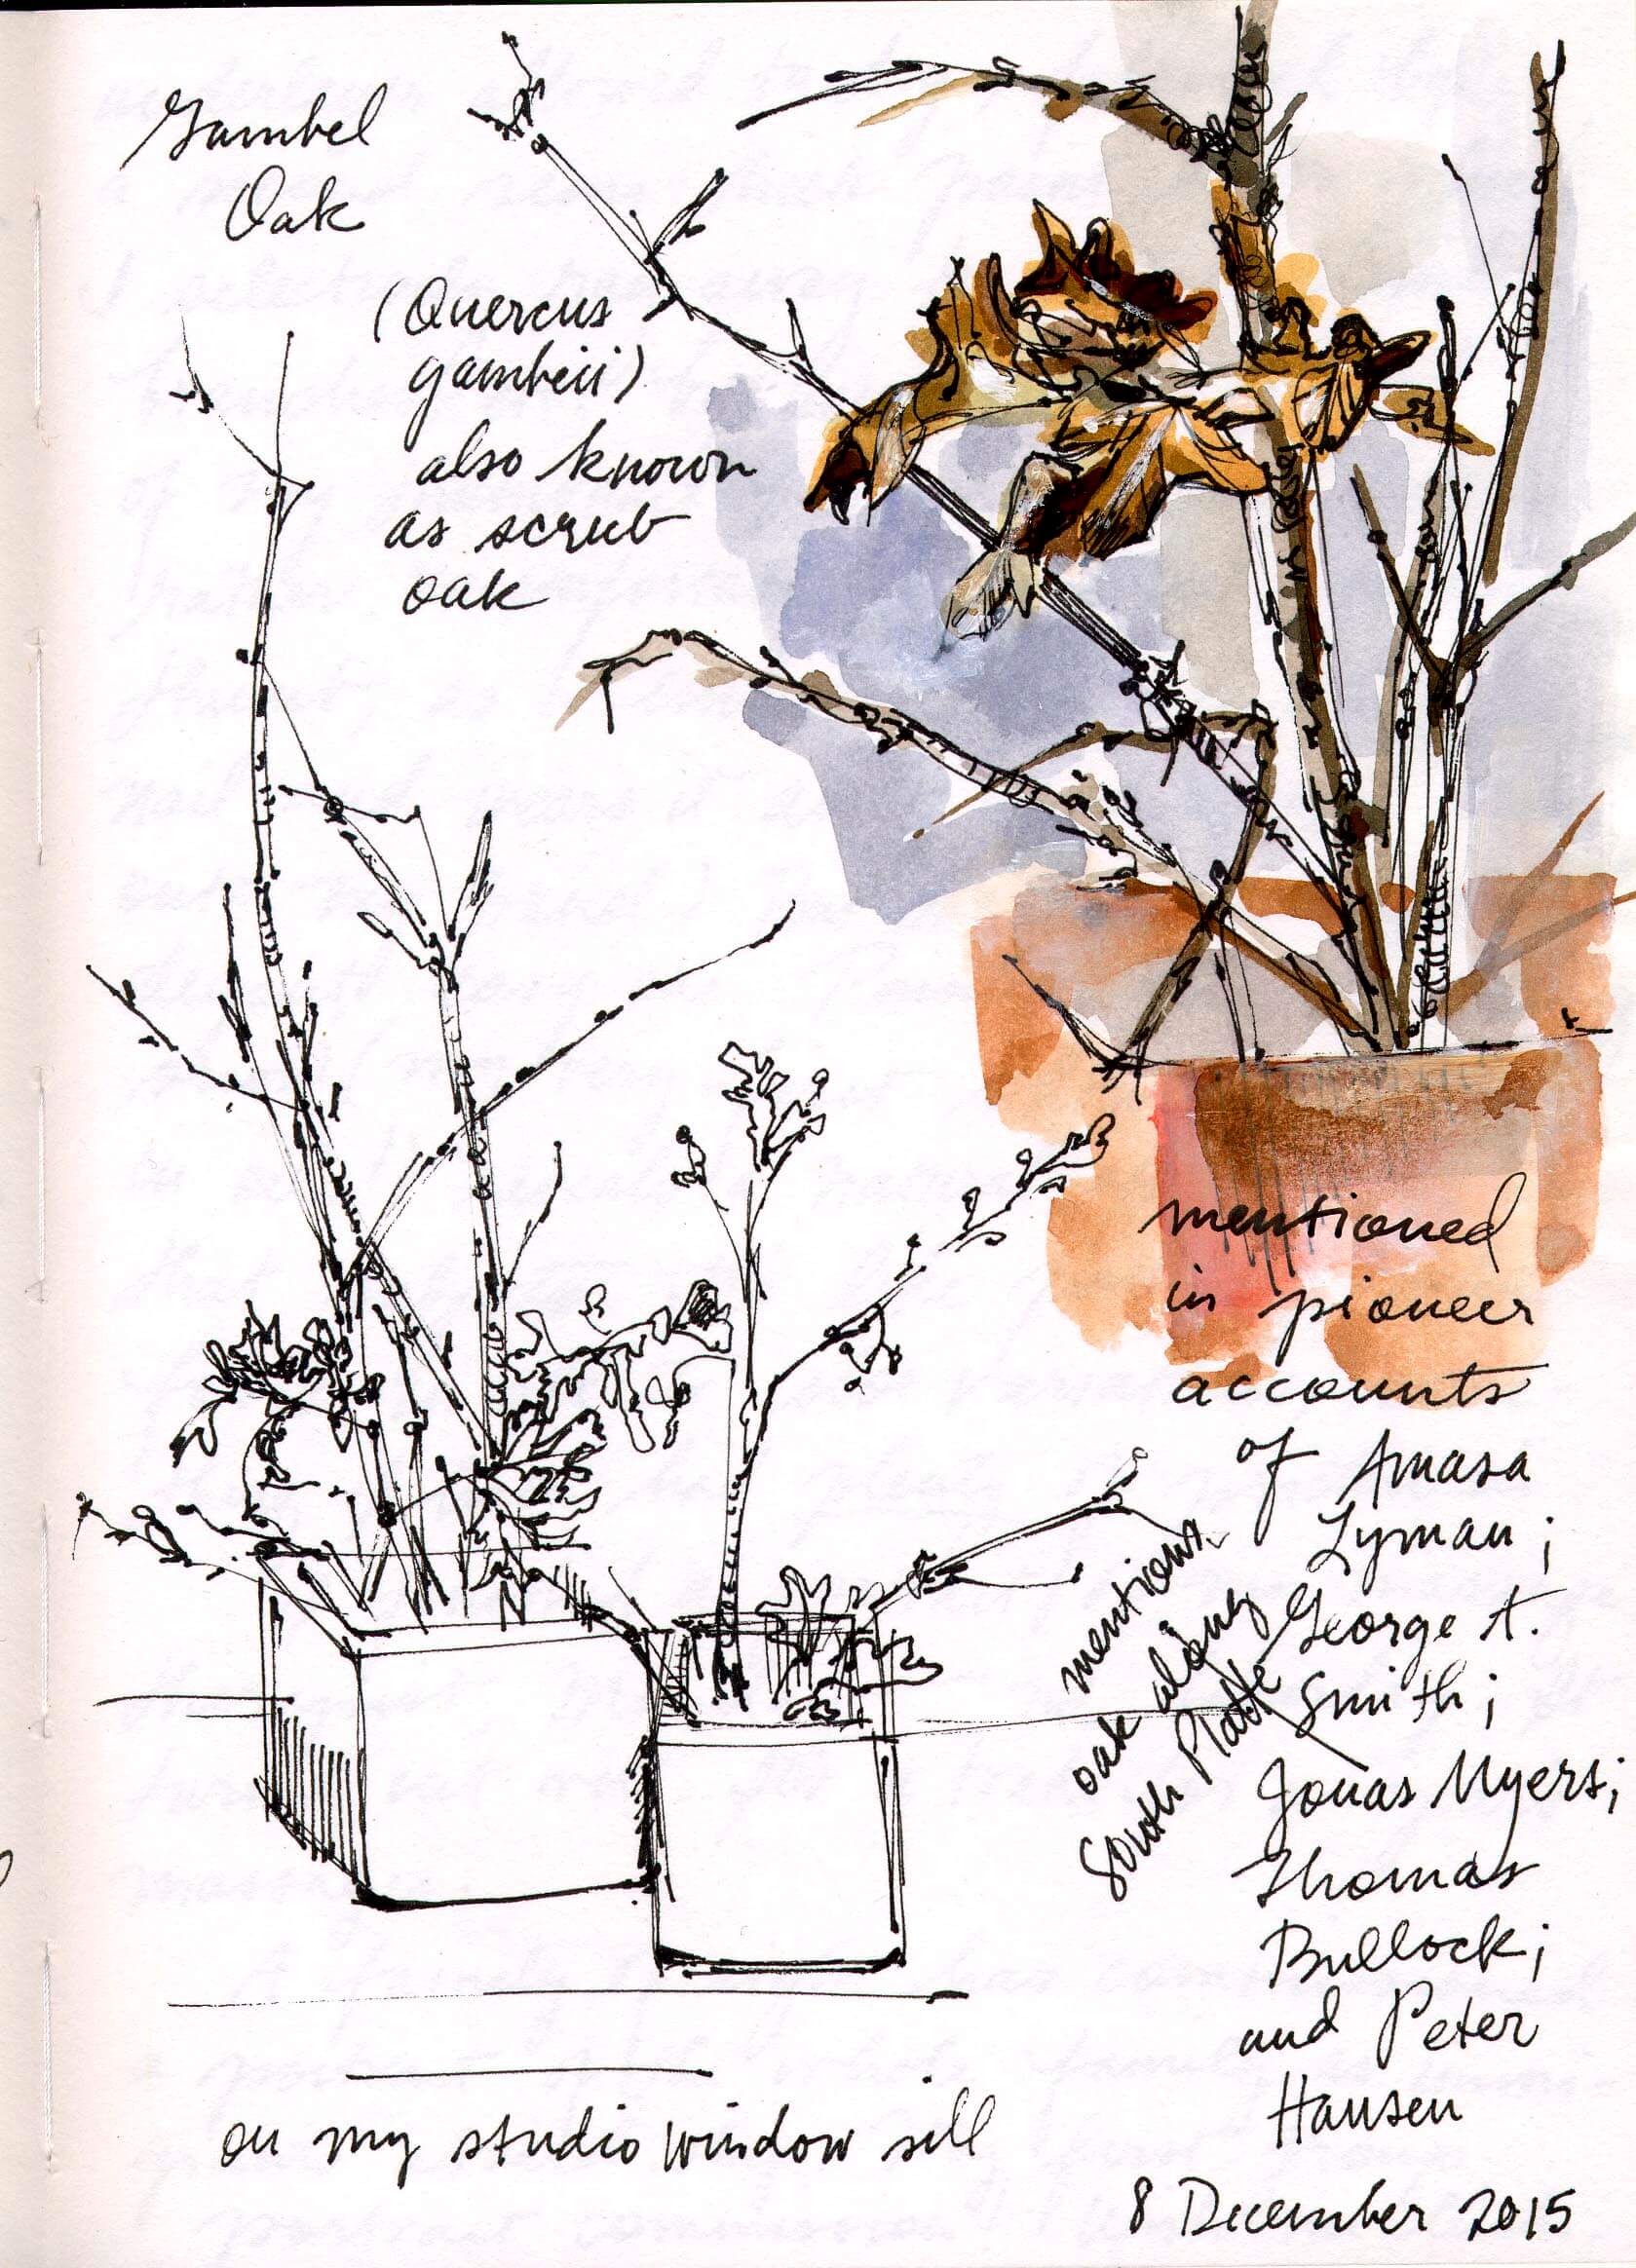 Gambel
Oak
(Quercus
gambelii)
also known
as scrub
oak
mentioned
in pioneer
accounts
of Amasa
Lyman;
George A.
Smith;
Jonas Myers;
Thomas
Bullock;
and Peter
Hansen
mentions
oak along
South Platte
on my studio window sill
8 December 2015